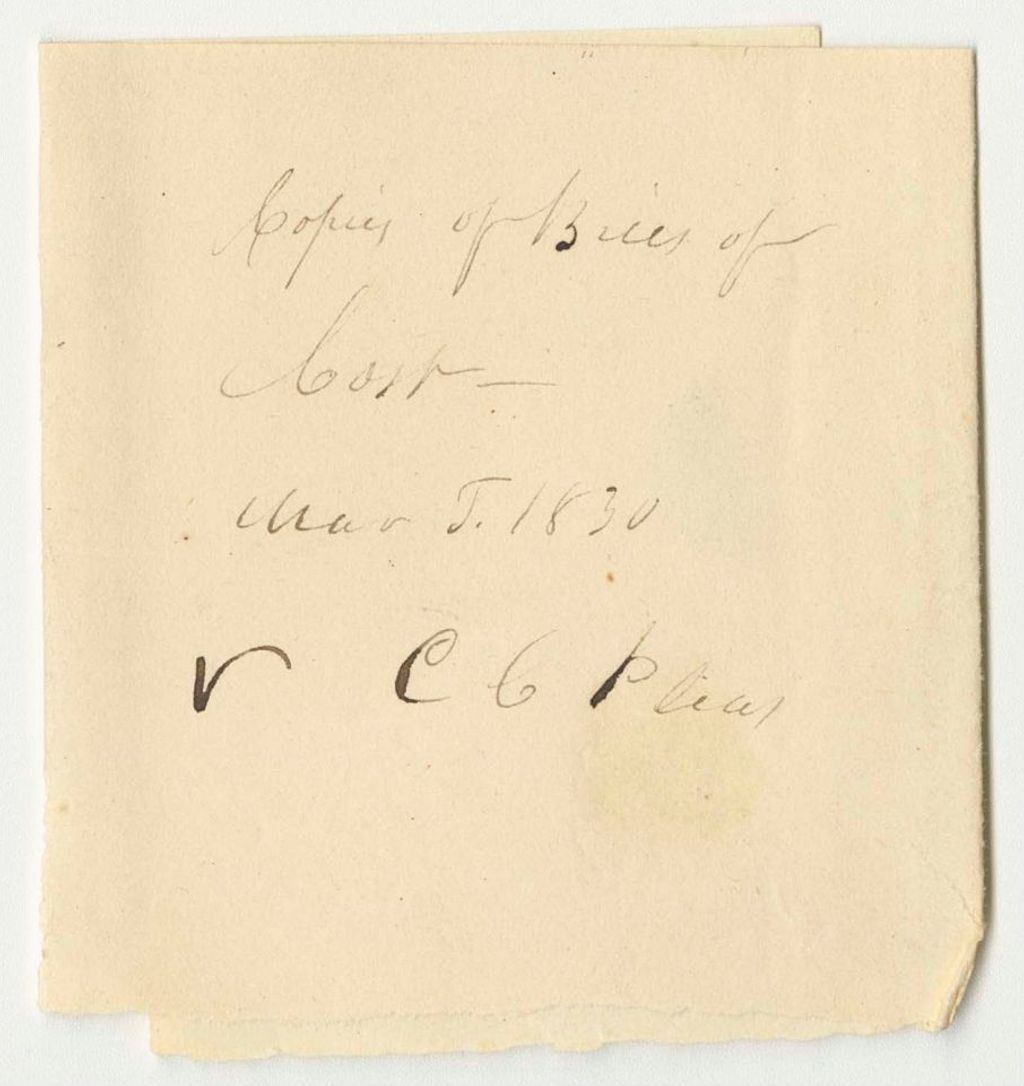 Copies of Bills of
Cost —
Mar T. 1830
C C Pleas